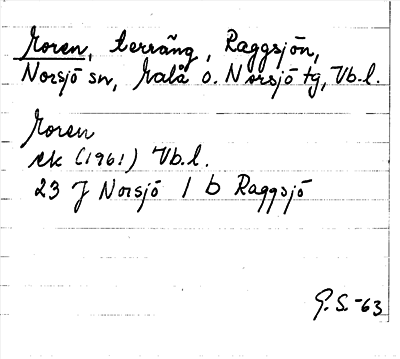 Moren, terräng, Raggsjön,
Norsjö sn, Malå o. Norsjö tg, Vb.l.
Moren
ek (1961) Vb.l.
23 J Norsjö 1 b Raggsjö
G.S.-63